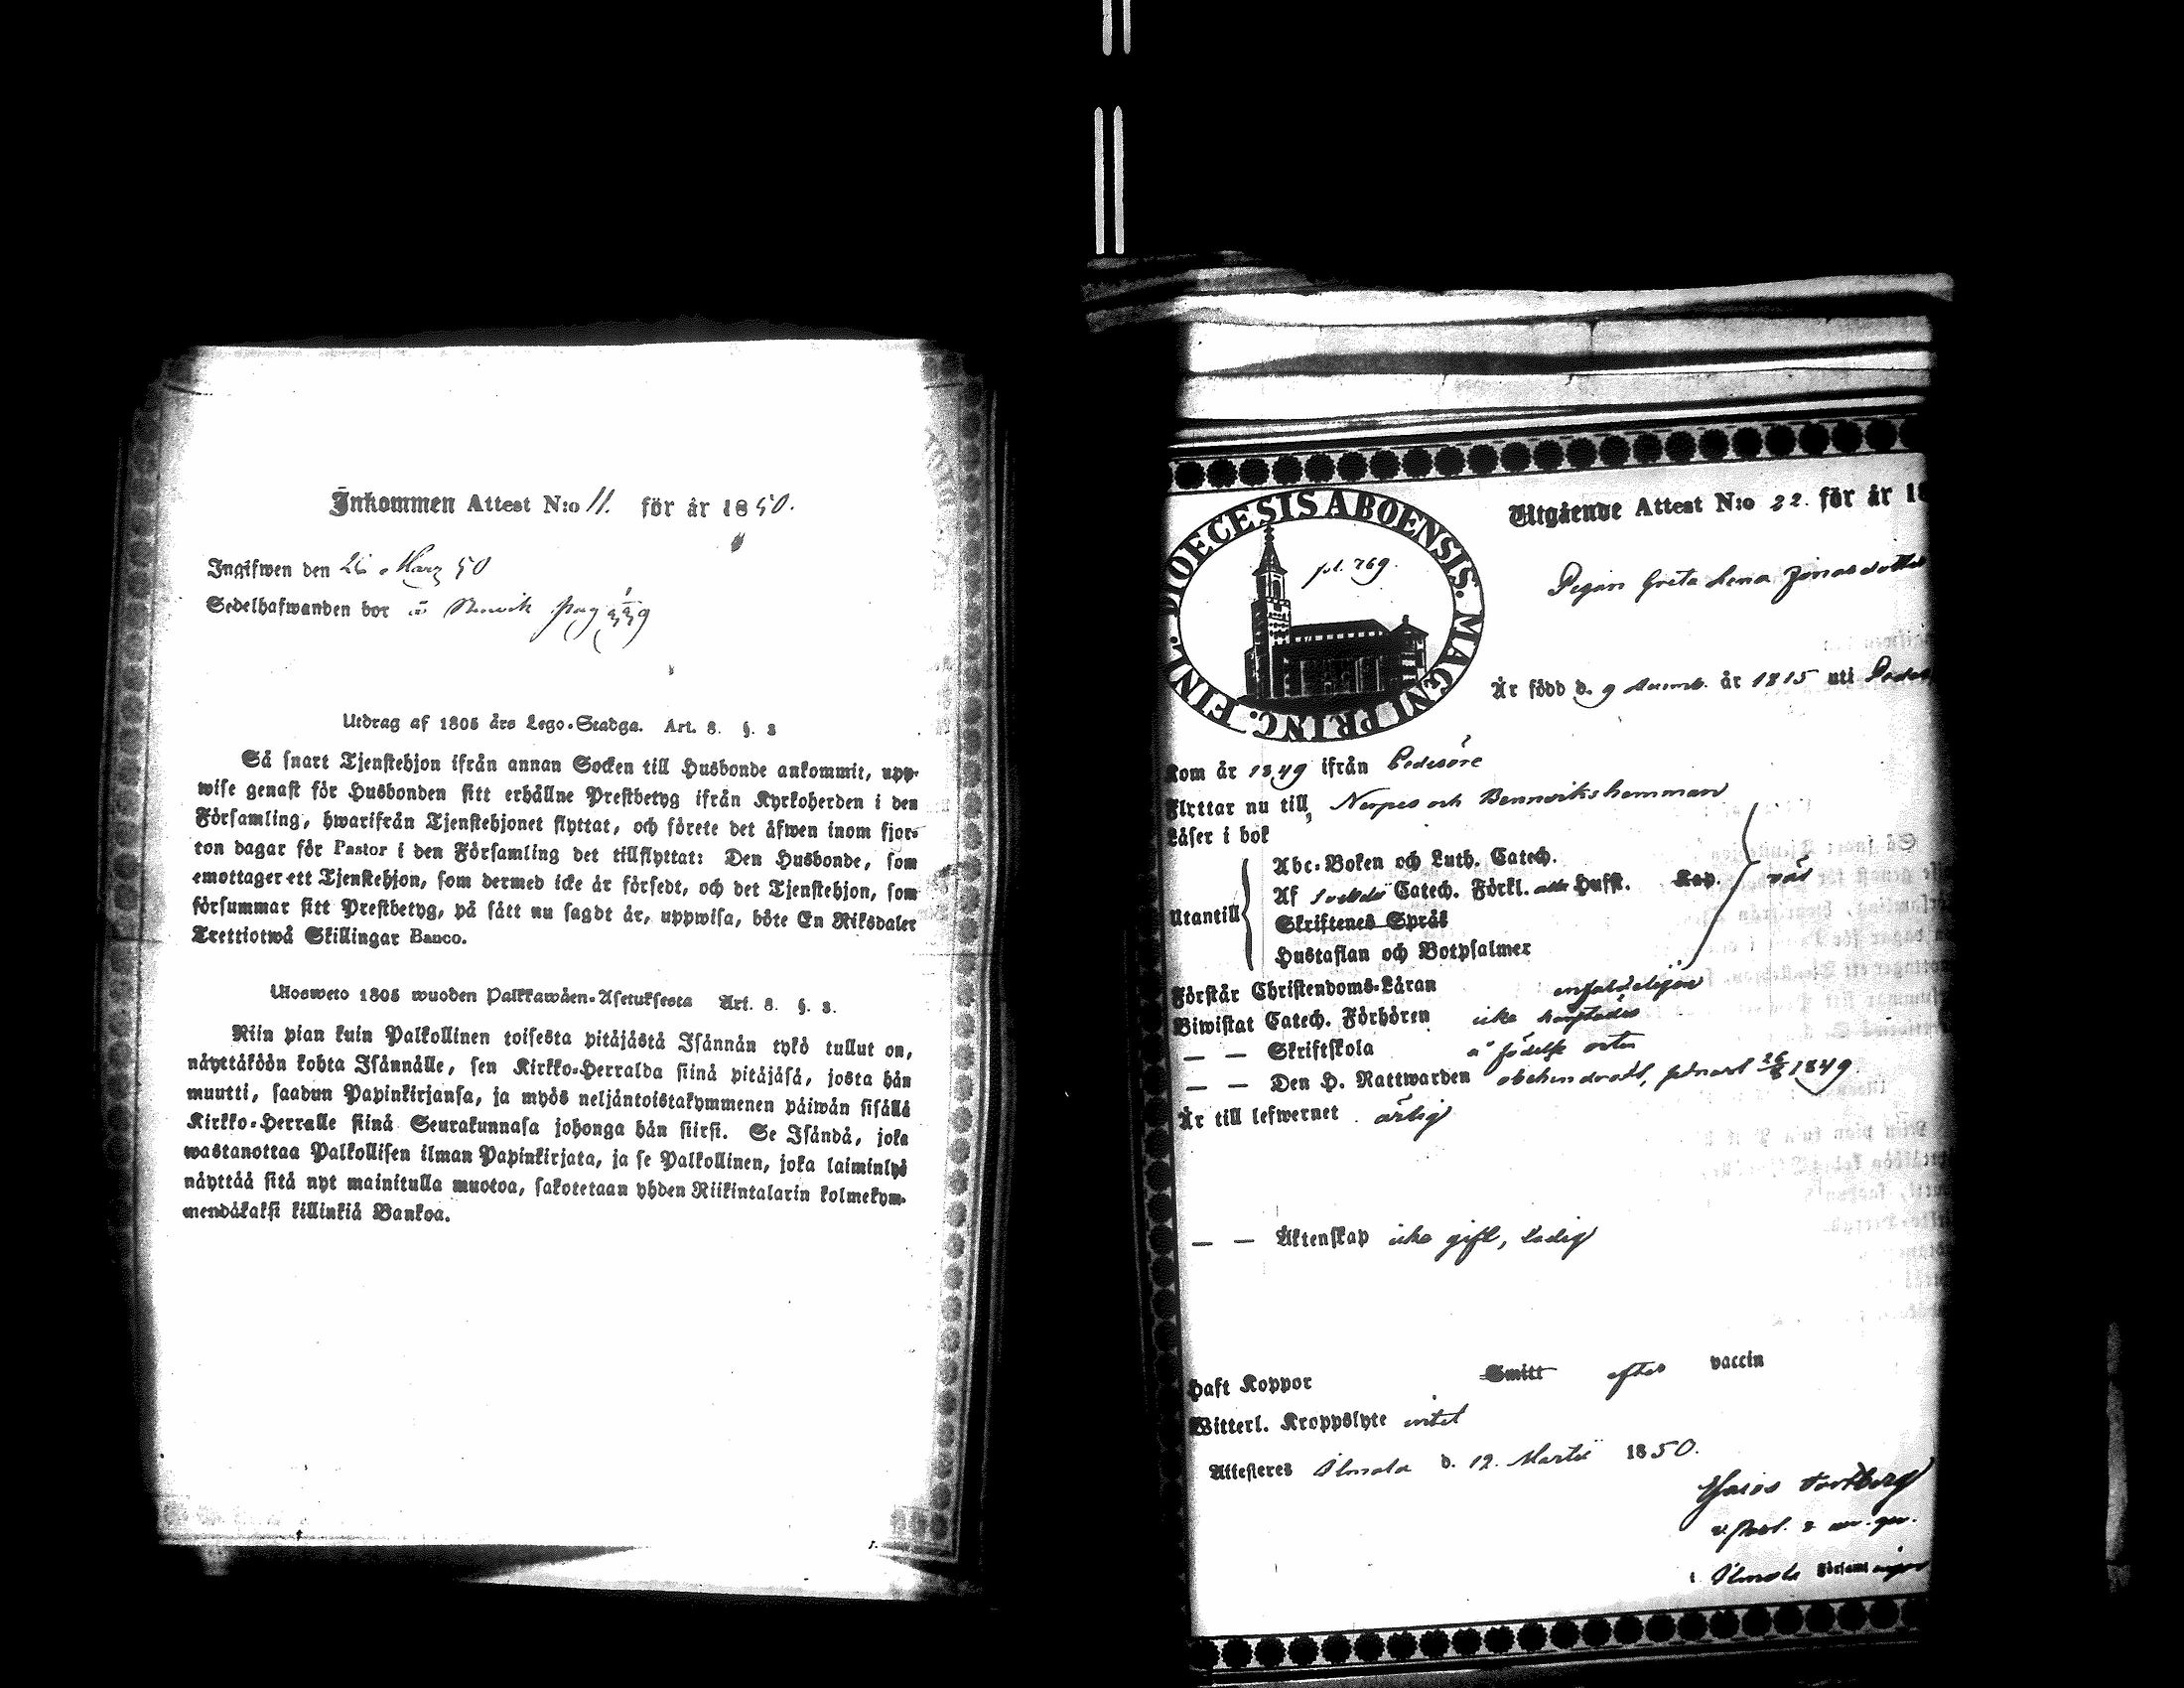 Inkommen Attest N:o 11. för år 1850.
Ingifwen den 26 Marz 50
Sedelhafwanden bor å pag
Utdrag af 1805 års Lego-Stadga. Art. 8. §. 3
Så snart Tjenstehjon ifrån annan Socken till Husbonde ankommit, upp-
wise genast för Husbonden sitt erhållne Prestbetyg ifrån Kyrkoherden i den
Församling, hwarifrån Tjenstehjonet flyttat, och förete det äfwen inom fjor-
ton dagar för Pastor i den Församling det tillflyttat: Den Husbonde, som
emottager ett Tjenstehjon, som dermed icke är försedt, och det Tjenstehjon, som
försummar sitt Prestbetyg, på sätt nu sagdt är, uppwisa, böte En Riksdaler
Trettiotwå Skillingar Banco.
Ulosweto 1805 wuoden Palkkawäen-Asetuksesta Art. 8. §. 3.
Niin pian kuin Palkollinen toisesta pitäjästä Isännän tykö tullut on,
näyttäköön kohta Isännälle, sen Kirkko-Herralda siinä pitäjäsä, josta hän
muutti, saadun Papinkirjansa, ja myös neljäntoistakymmenen päiwän sisällä
Kirkko-Herralle siinä Seurakunnasa johonga hän siirsi. Se Isändä, joka
wastanottaa Palkollisen ilman Papinkirjata, ja se Palkollinen, joka laiminlyö
näyttää sitä nyt mainitulla muotoa, sakotetaan yhden Riikintalarin kolmekym-
mendäkaksi killinkiä Bankoa.
DIOECESIS ABOENSIS. MAGNI PRINC. FINL.
pl. 769.
Utgående Attest N:o 22. för år 18
Pigan Greta Lena Jonasdotter
Är född d. 9 år 1815 uti Peder
Kom år 1849 ifrån Pedersöre
Flyttar nu till Nerpes och Bennvikshemman
Läser i bok
Abc-Boken och Luth. Catech.
Af Svebeli Catech. Förkl. Husst. Kap. nås
Utantill Skriftenes Språk
Hustaflan och Botpsalmer
Förstår Christendoms-Läran enfaldeligen
Biwistat Catech. Förhören icke
— — Skriftskola å födelse orten
— — Den H. Nattwarden obehindradt, 26/8 1849.
Är till lefwernet ärlig
— — Äktenskap icke gift, ledig
Haft Koppor Smitt efter vaccin
Witterl. Kroppslyte intet
Attesteres Ilmola d. 12. Martii 1850.
v. Past.
i Ilmola Församlingar